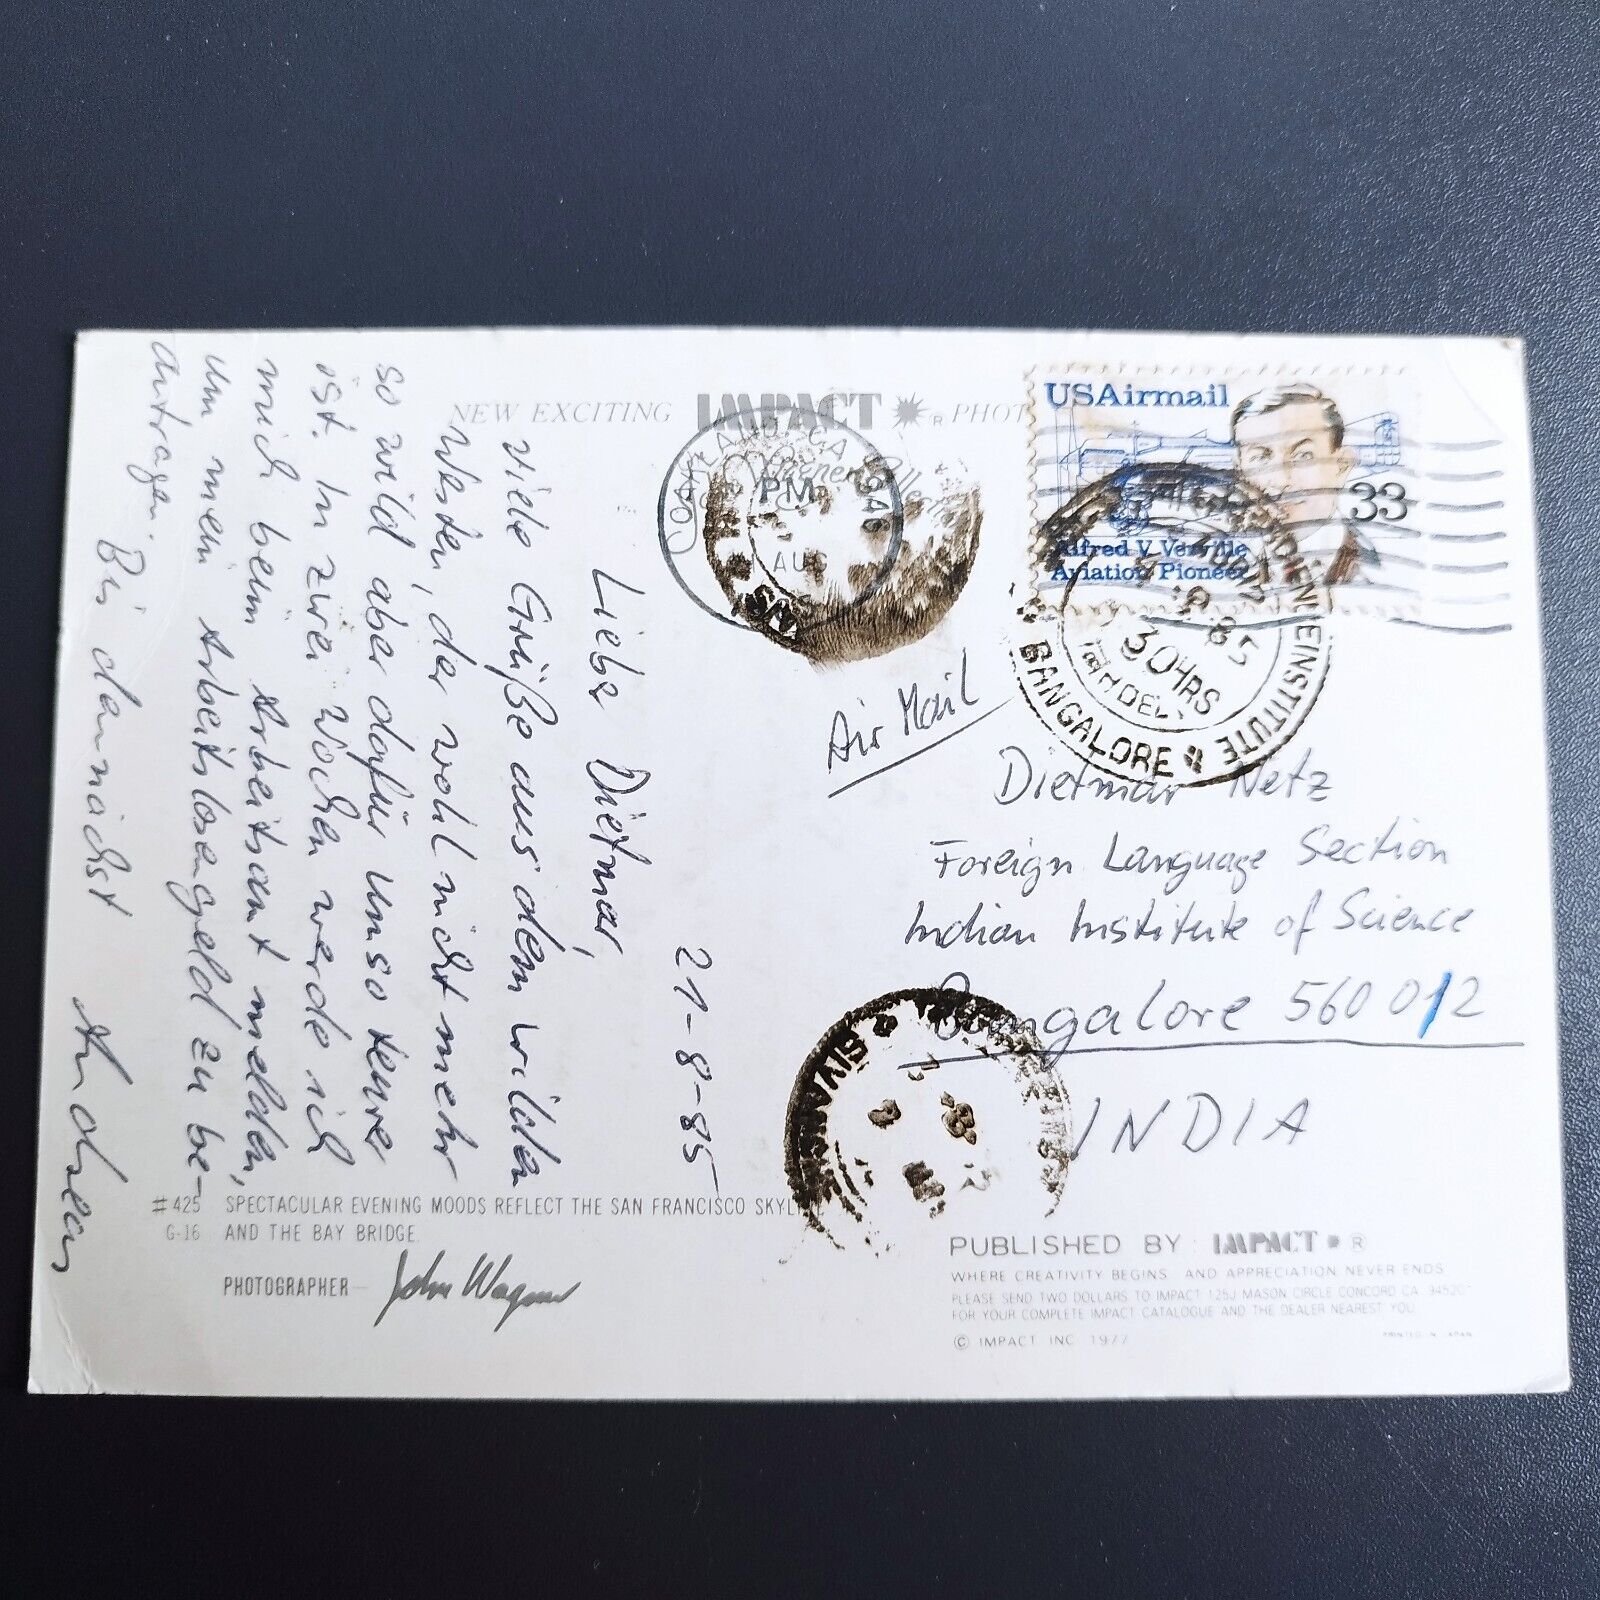 NEW EXCITING IMPACT ® PHOT
21-8-85
Liebe Dietmar,
viele Grüße aus dem wilden
Westen, der wohl nicht mehr
so wild aber dafür umso teure
ist. In zwei Wochen werde ich
mich beim Arbeitsamt melden,
um mein Arbeitslosengeld zu be-
antragen. Bis demnächst
Andreas
USAirmail
33
Alfred V. Verville
Aviation Pioneer
OAKLAND, CA
PM
AUG
INSTITUTE
BANGALORE
30HRS
Air Mail
Dietmar Netz
Foreign Language Section
Indian Institute of Science
Bangalore 560 012
INDIA
#425 SPECTACULAR EVENING MOODS REFLECT THE SAN FRANCISCO SKYLINE
G-16 AND THE BAY BRIDGE.
PHOTOGRAPHER — John Wagner
PUBLISHED BY: IMPACT ®
WHERE CREATIVITY BEGINS AND APPRECIATION NEVER ENDS
PLEASE SEND TWO DOLLARS TO IMPACT 125J MASON CIRCLE CONCORD CA. 94520
FOR YOUR COMPLETE IMPACT CATALOGUE AND THE DEALER NEAREST YOU
© IMPACT INC 1977
PRINTED IN JAPAN